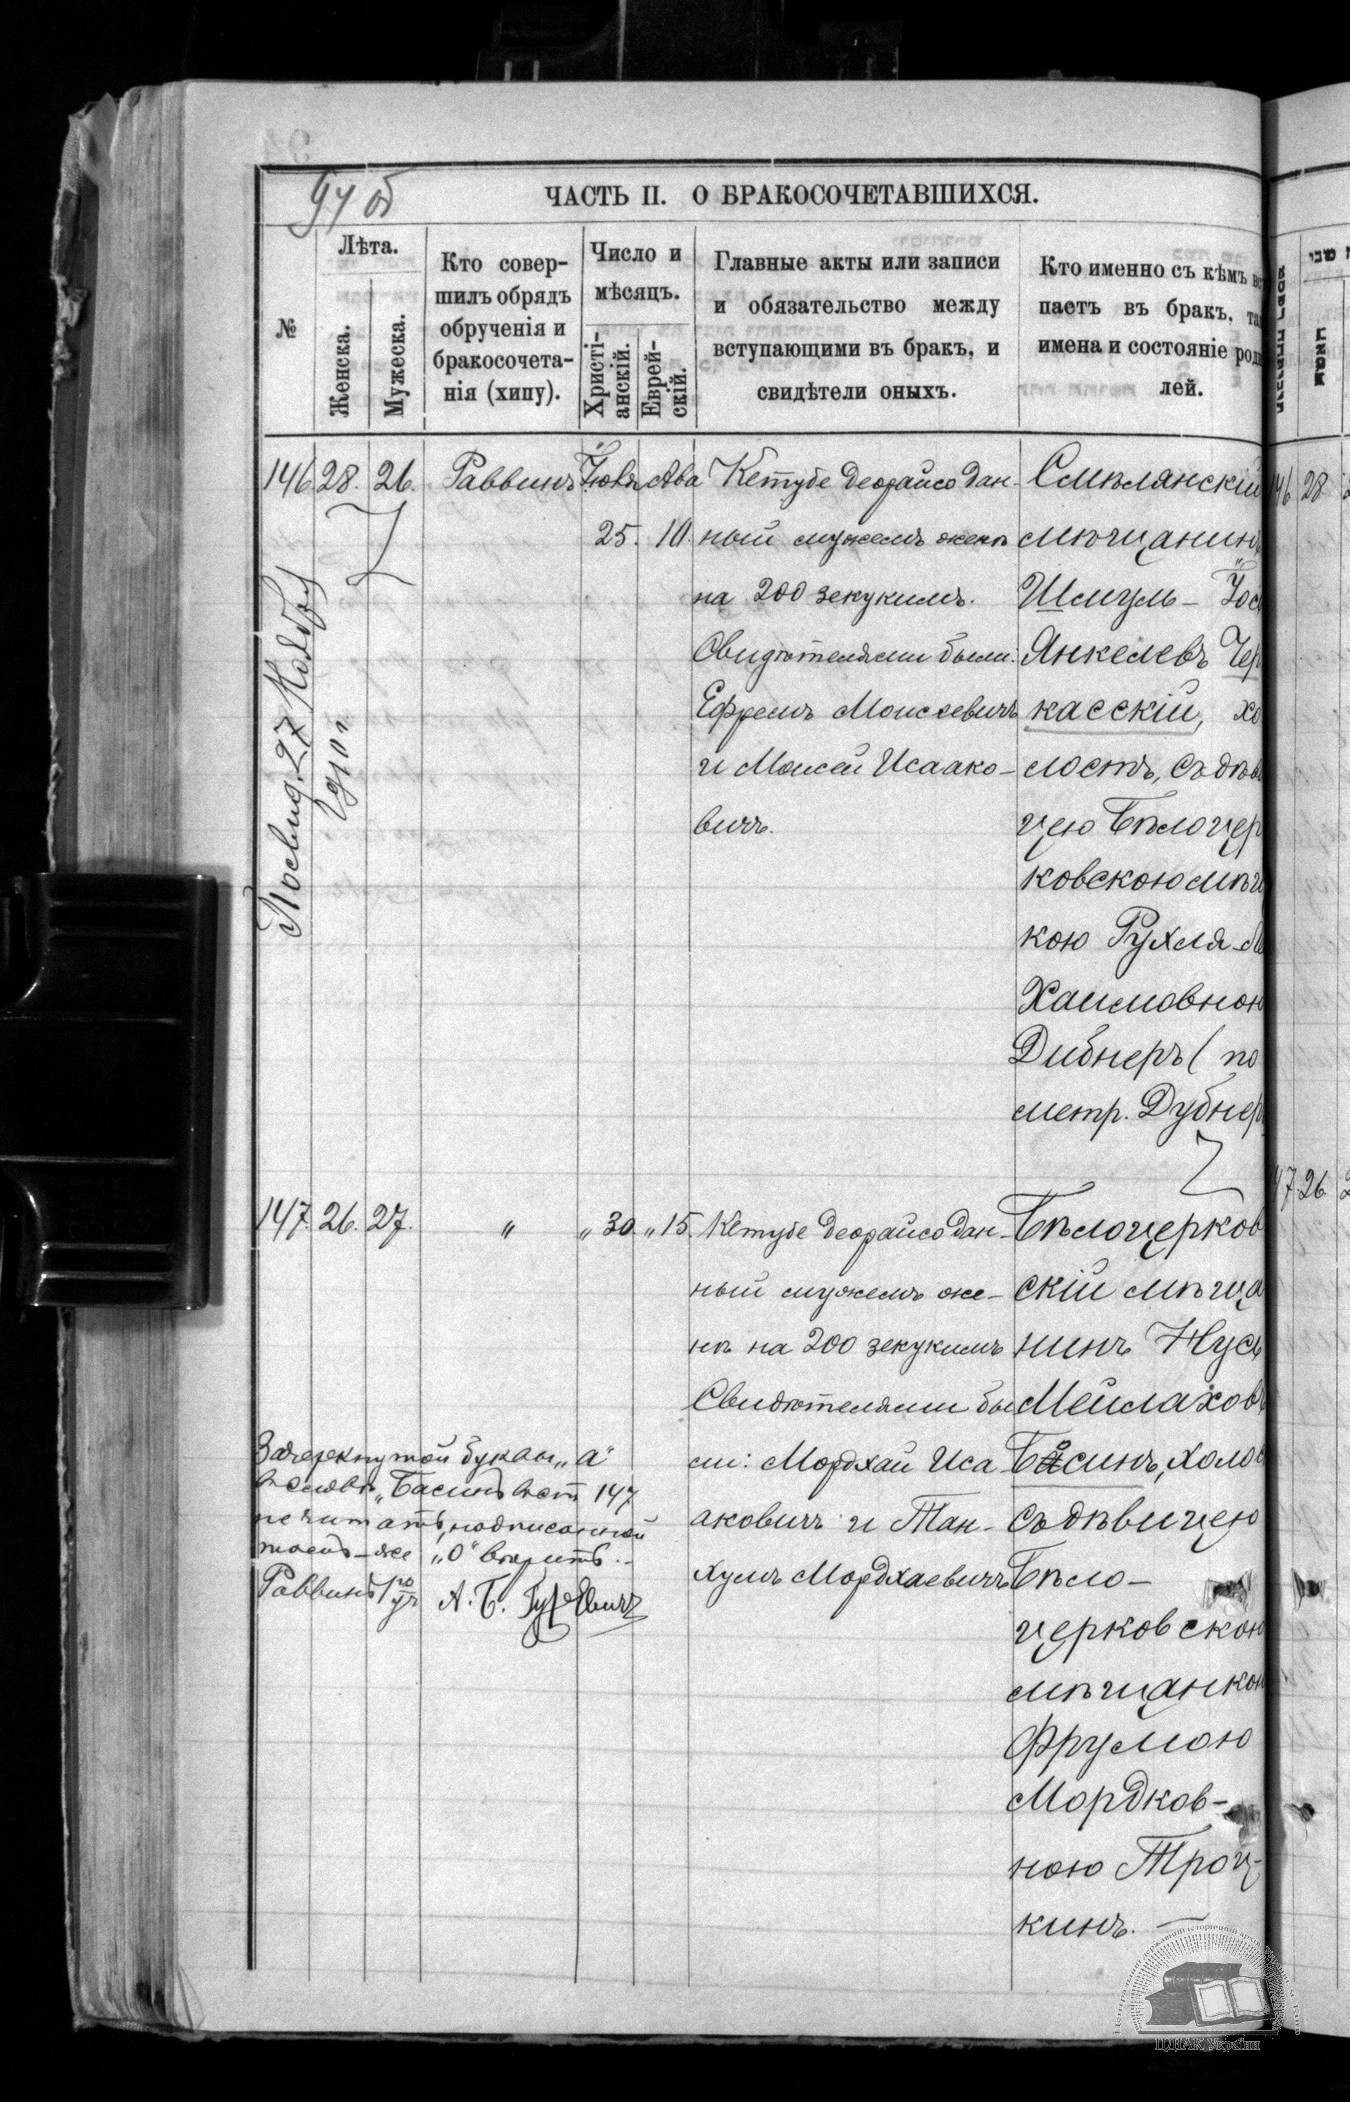 94 об
ЧАСТЬ II. О БРАКОСОЧЕТАВШИХСЯ.
№
Лѣта.
Женска.
Мужеска.
Кто совер-
шилъ обрядъ
обрученія и
бракосочета-
нія (хипу).
Число и
мѣсяцъ.
Христі-
анскій.
Еврей-
скій.
Главные акты или записи
и обязательство между
вступающими въ бракъ, и
свидѣтели оныхъ.
Кто именно съ кѣмъ вс
паетъ въ бракъ, та
имена и состояніе род
лей.
146. 28. 26. Раввинъ Іюля Ава
25. 10.
Кетубе деорайсо дан-
ный мужемъ женѣ
на 200 зекукимъ.
Свидѣтелями были:
Ефремъ Моисеевичъ
и Моисей Исаако-
вичъ.
Смѣлянскій
мѣщанинъ
Шмуль- Іос
Янкелевъ Чер
касскій, хо
лостъ, съ дѣв
цею Бѣлоцер
ковскою мѣщ
кою Рухля-
Хаимовною
Дибнеръ (по
метр. Дубнер
27
147. 26. 27. " " 30. " 15.
Кетубе деорайсо дан-
ный мужемъ же-
нѣ на 200 зекукимъ
Свидѣтелями бы
ли: Мордхай Иса
аковичъ и Тан-
хумъ Мордхаевичъ
Бѣлоцерков
скій мѣща
нинъ Нусь
Мейлаховъ
Басинъ, холос
съ дѣвицею
Бѣло-
церковскою
мѣщанкою
Фрумою
Мордков-
ною Троц-
кинъ. —
Зачеркнутой буквы „а"
въ словѣ „Басинъ" въ ст 147
не читать, надписанной
„о" вѣрить. -
Раввинъ А. Б. Гуревичъ
146 28
147 26
ЦДІАК України